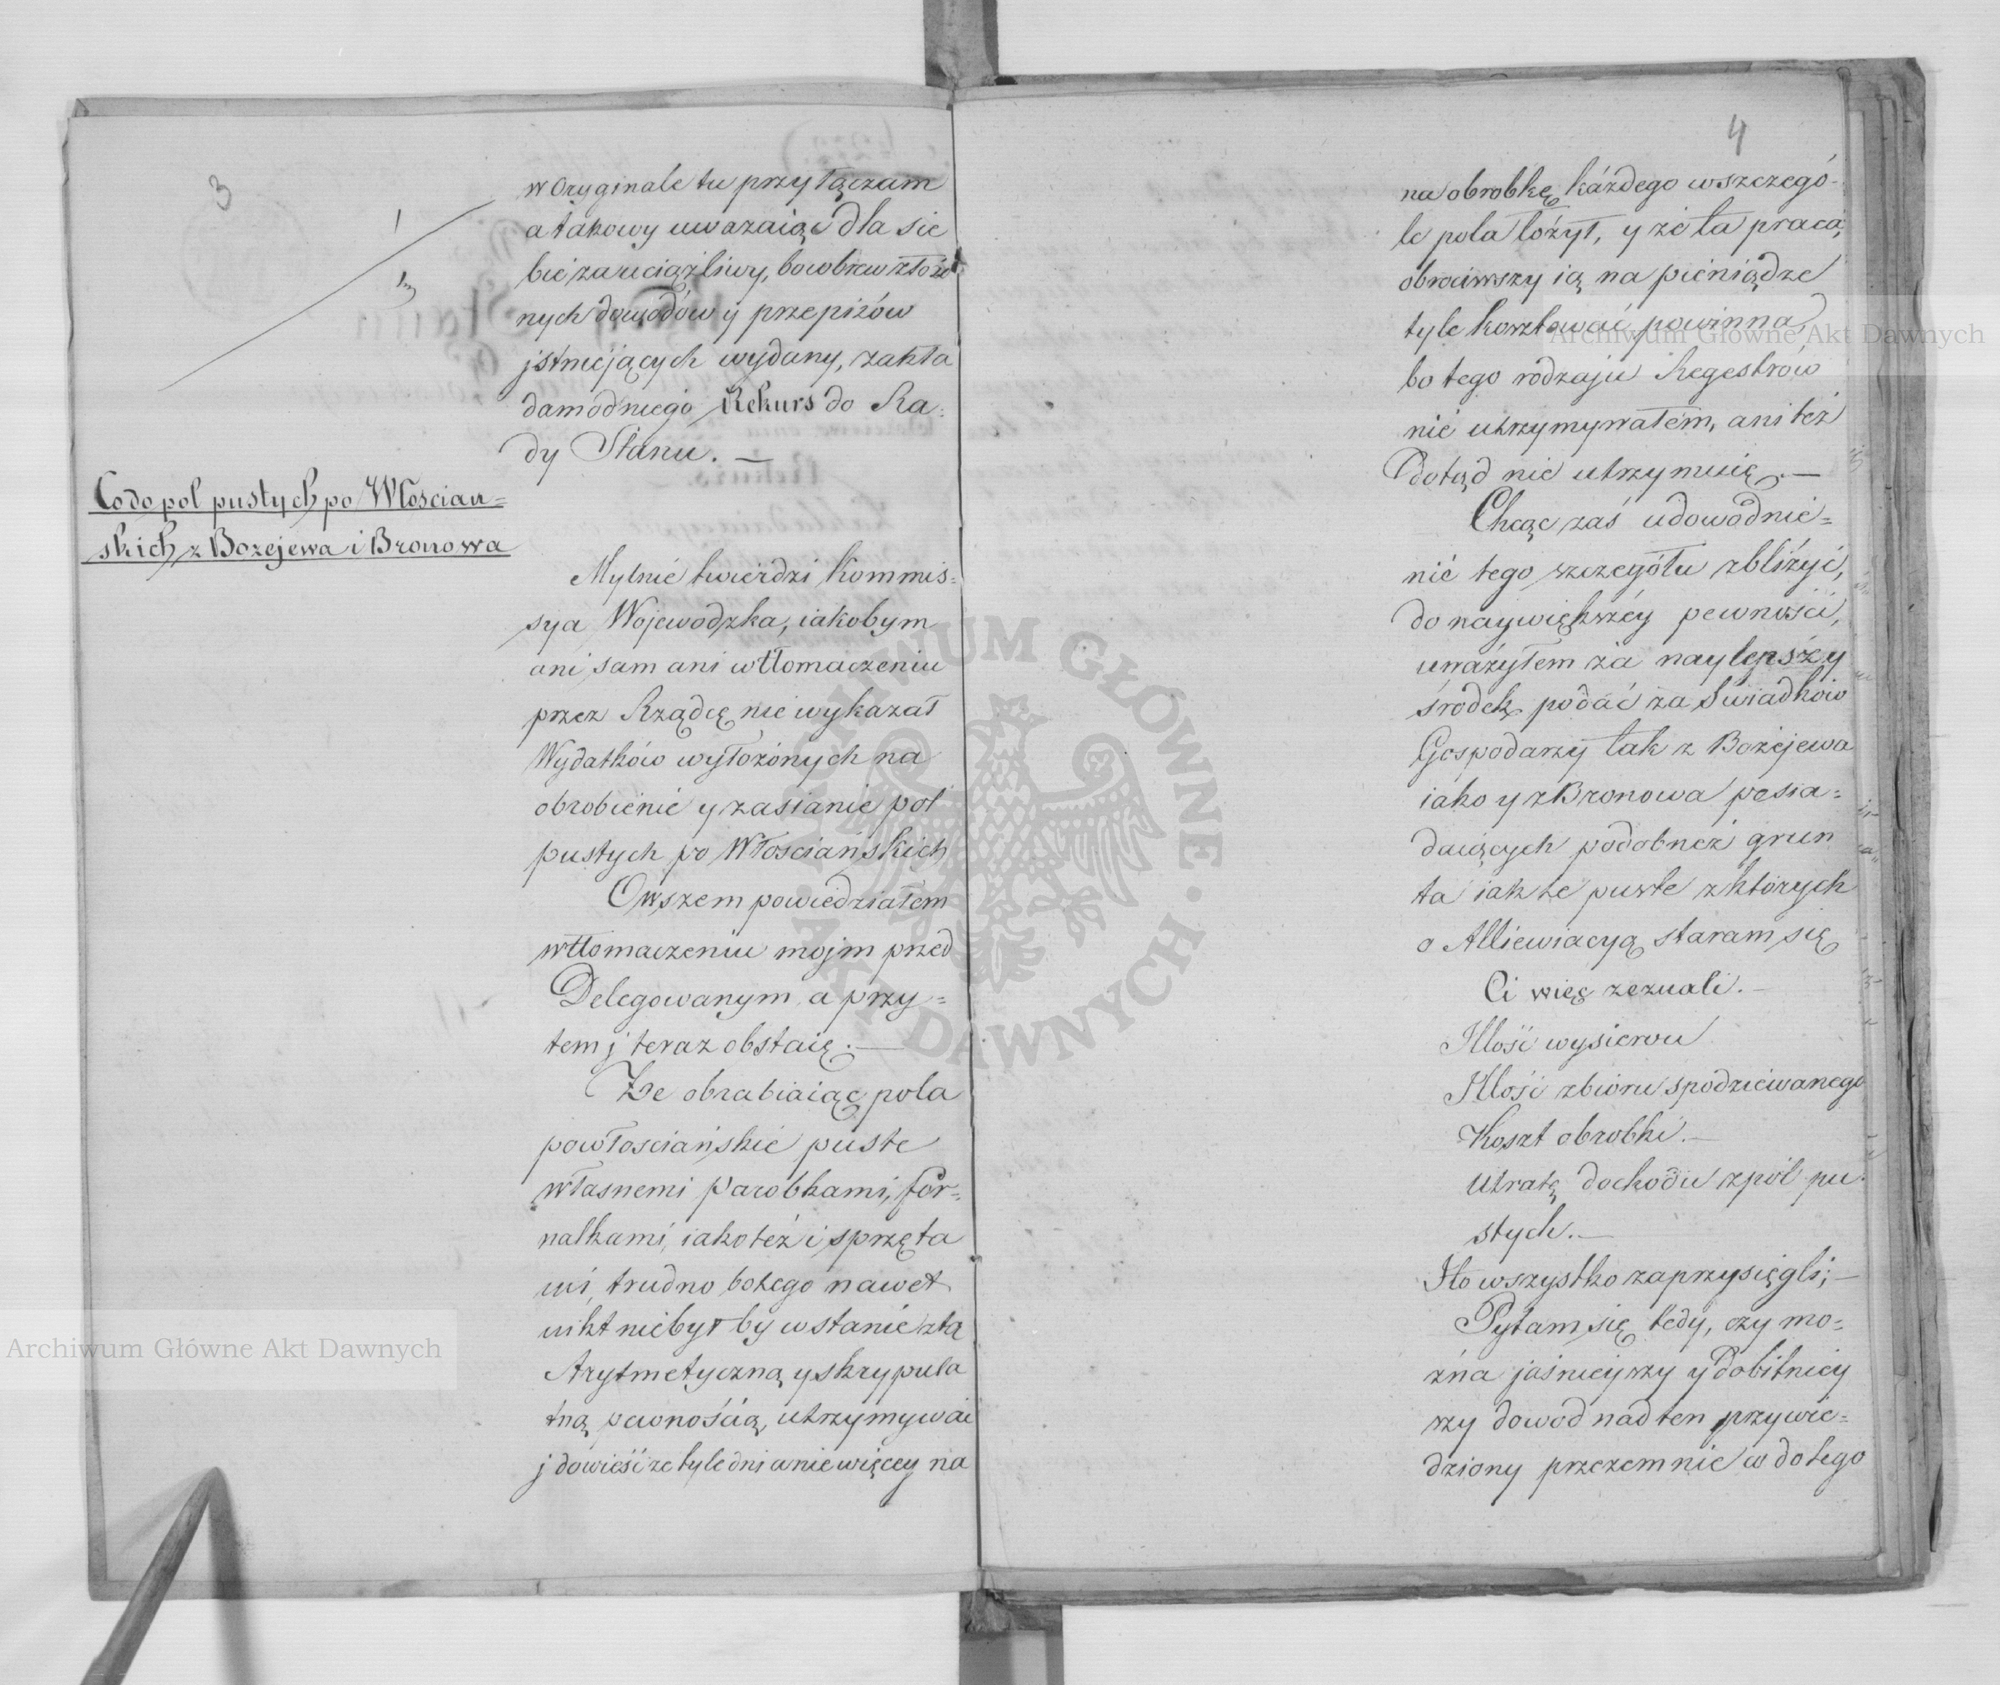 3
w Oryginale tu przyłączam
a takowy uwazaiąc dla sie
bie za uciążliwy, bo wbrew złożo
nych dowodów y przepizów
jstniejących wydany, zakła
dam od niego Rekurs do Ra-
dy Stanu. —
Co do pol pustych po Włoscian=
skich z Bozejewa i Bronowa
Mylnie twierdzi Kommis-
sya Wojewodzka, iakobym
ani sam ani w tłomaczeniu
przez Rządcę nie wykazał
Wydatków wyłożónych na
obrobienie y zasianie pol
pustych po Włosciańskich
Owszem powiedziałem
w tłomaczeniu mojm przed
Delegowanym a przy=
tem j teraz obstaię. —
Ze obrabiaiąc pola
powłosciańskie puste
własnemi Parobkami, for-
nalkami, iako też i sprzęta
mi, trudno bo tego nawet
nikt nie był by w stanie z tą
Arytmetyczną y skrypula
tną pewnością, utrzymywać
j dowieść ze tyle dni a nie więcey na
4
na obrobkę każdego w szczegó-
le pola łożył, y że ta praca,
obrociwszy ią na pieniądze
tyle kosztować powinna,
bo tego rodzaju Regestrów
nie utrzymywałem, ani też
dotąd nie utrzymuię. —
Chcąc zaś udowodnie=
nie tego szczegółu zbliżyć,
do naywiększéy pewności,
uważyłem za naylepszéy
środek podać za Swiadków
Gospodarzy tak z Bożejewa
iako y z Bronowa posia=
daiących podobneż grun
ta iak te puste z których
o Alliewiacyą staram się
Ci więc zeznali. —
Jllość wysiewu
Jllość zbioru spodziewanego
Koszt obrobki. —
Utratę dochodu z pól pu-
stych. —
J to wszystko zaprzysięgli; —
Pytam się tedy, czy mo-
żna jaśnieyszy y dobitniey
szy dowod nad ten przywie-
dziony przezemnie w do tego
Archiwum Główne Akt Dawnych
Archiwum Główne Akt Dawnych
ARCHIWUM GŁÓWNE · AKT DAWNYCH ·